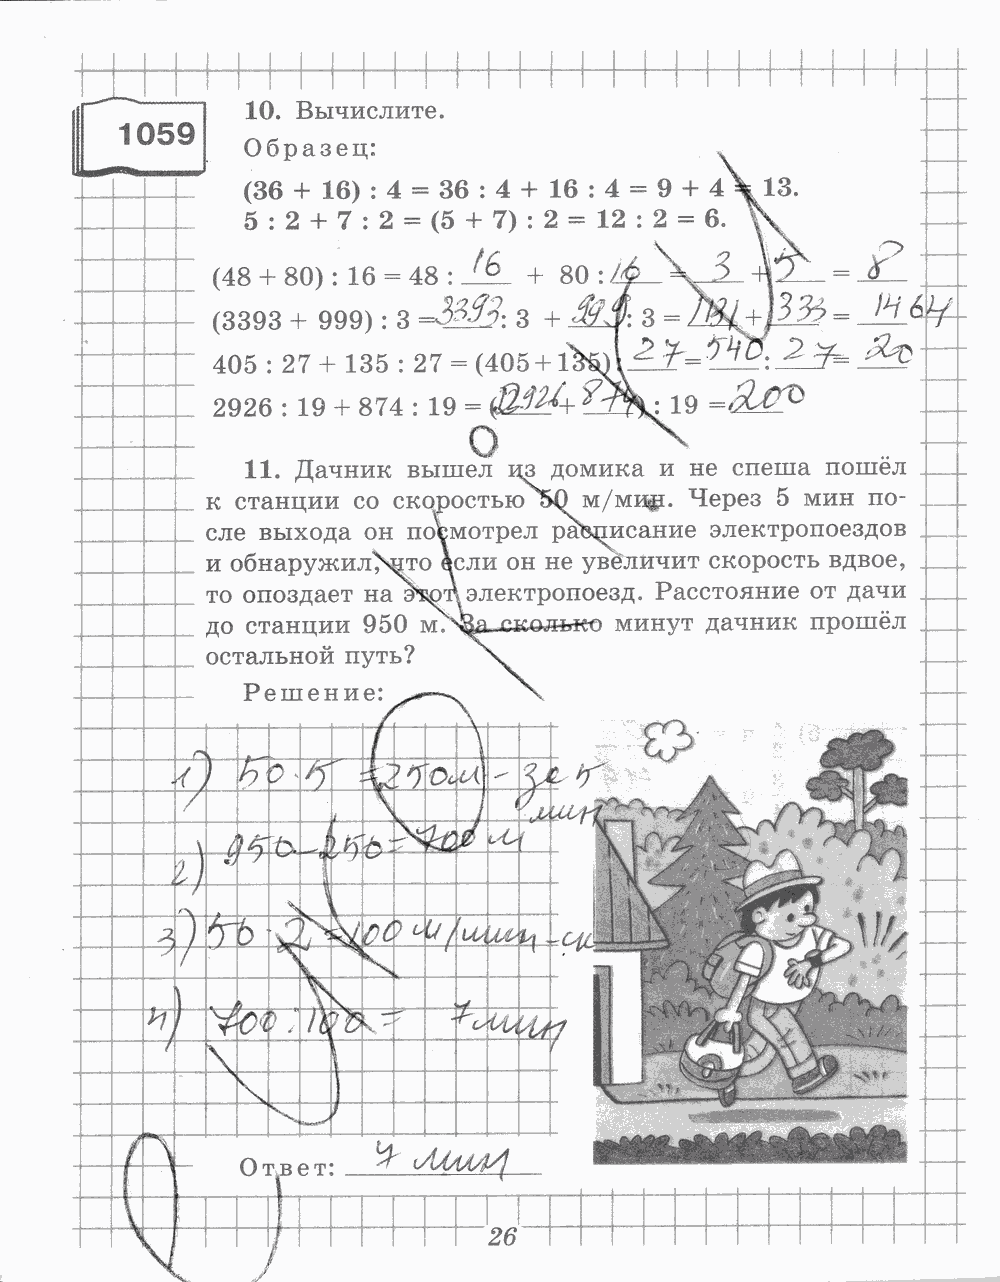 1059
10. Вычислите.
Образец:
(36 + 16) : 4 = 36 : 4 + 16 : 4 = 9 + 4 = 13.
5 : 2 + 7 : 2 = (5 + 7) : 2 = 12 : 2 = 6.
(48 + 80) : 16 = 48 : 16 + 80 : 16 = 3 + 5 = 8
(3393 + 999) : 3 = 3393 : 3 + 999 : 3 = 1131 + 333 = 1464
405 : 27 + 135 : 27 = (405 + 135) : 27 = 540 : 27 = 20
2926 : 19 + 874 : 19 = (2926 + 874) : 19 = 200
11. Дачник вышел из домика и не спеша пошёл
к станции со скоростью 50 м/мин. Через 5 мин по-
сле выхода он посмотрел расписание электропоездов
и обнаружил, что если он не увеличит скорость вдвое,
то опоздает на этот электропоезд. Расстояние от дачи
до станции 950 м. За сколько минут дачник прошёл
остальной путь?
Решение:
1) 50 · 5 = 250 м - за 5
мин
2) 950 - 250 = 700 м
3) 50 · 2 = 100 м/мин - ск
4) 700 : 100 = 7 мин
Ответ: 7 мин
26